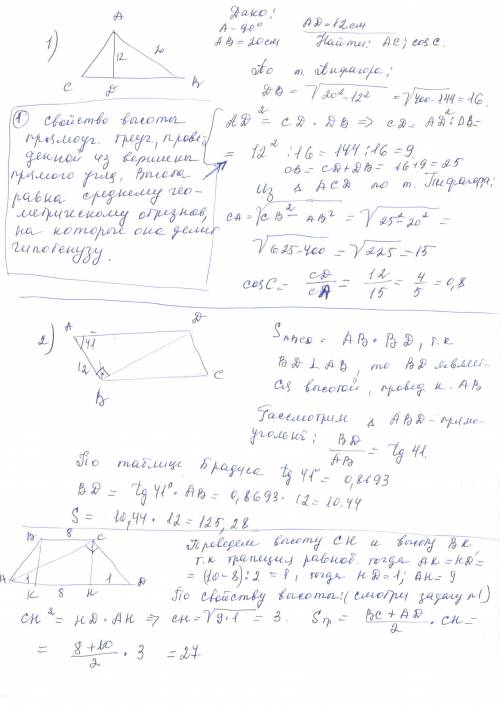 1)
A
12
20
C
D
B
Дано:
A - 90°
AB = 20см
AD = 12см
Найти: AC; cos C.
По т. Пифагора:
DB = √20² - 12² = √400 - 144 = 16.
① свойство высоты
прямоуг. треуг, прове-
денной из вершины
прямого угла, Высота
равна среднему гео-
метрическому отрезков,
на которые она делит
гипотенузу.
AD² = CD · DB ⇒ CD = AD² : DB =
= 12² : 16 = 144 : 16 = 9.
CB = CD + DB = 16 + 9 = 25
из Δ ACD по т. Пифагора:
CA = √CB² - AB² = √25² - 20² =
√625 - 400 = √225 = 15
cos C = CD/CA = 12/15 = 4/5 = 0,8
2)
A
D
41
12
B
C
S ABCD = AB · BD, т.к
BD ⊥ AB, то BD являет-
ся высотой, провед к. AB
Рассмотрим Δ ABD - прямо-
угольный: BD/AB = tg 41.
По таблице Брадиса tg 41° = 0,8693
BD = tg 41° · AB = 0,8693 · 12 = 10.44
S = 10,44 · 12 = 125,28
B
8
C
A
1
K
8
H
1
D
Проведем высоту CH и высоту BK
т.к трапеция равноб. тогда AK = HD =
= (10 - 8) : 2 = 8, тогда HD = 1; AH = 9
По свойству высоты: (смотри задачу №1)
CH² = HD · AH ⇒ CH = √9 · 1 = 3. Sтр = BC + AD/2 · CH =
= 8 + 10/2 · 3 = 27